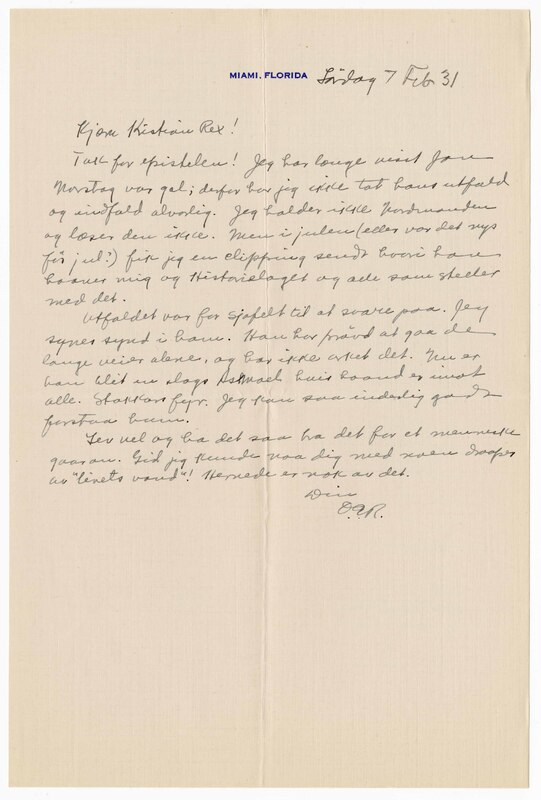 MIAMI, FLORIDA Lördag 7 Feb 31
Kjære Kristian Rex!
Tak for epistelen! Jeg har længe visst Jon
Norstog var gal; derfor har jeg ikke tat hans utfald
og indfald alvorlig. Jeg holder ikke Nordmanden
og læser den ikke. Men i julen (eller var det nys
för jul?) fik jeg en clipping sendt hvori han
haaner mig og Historielaget og alle som steller
med det.
Utfaldet var for sjofelt til at svare paa. Jeg
synes synd i ham. Han har prøvd at gaa de
lange veier alene, og har ikke orket det. Nu er
han blit en slags Ismael hvis haand er imot
alle. Stakkars fyr. Jeg kan saa inderlig godt
forstaa ham.
Lev vel og ha det saa bra det for et menneske
gaar an. Gid jeg kunde naa dig med noen draaper
av "livets vand"! Hernede er nok av det.
Din
O.E.R.